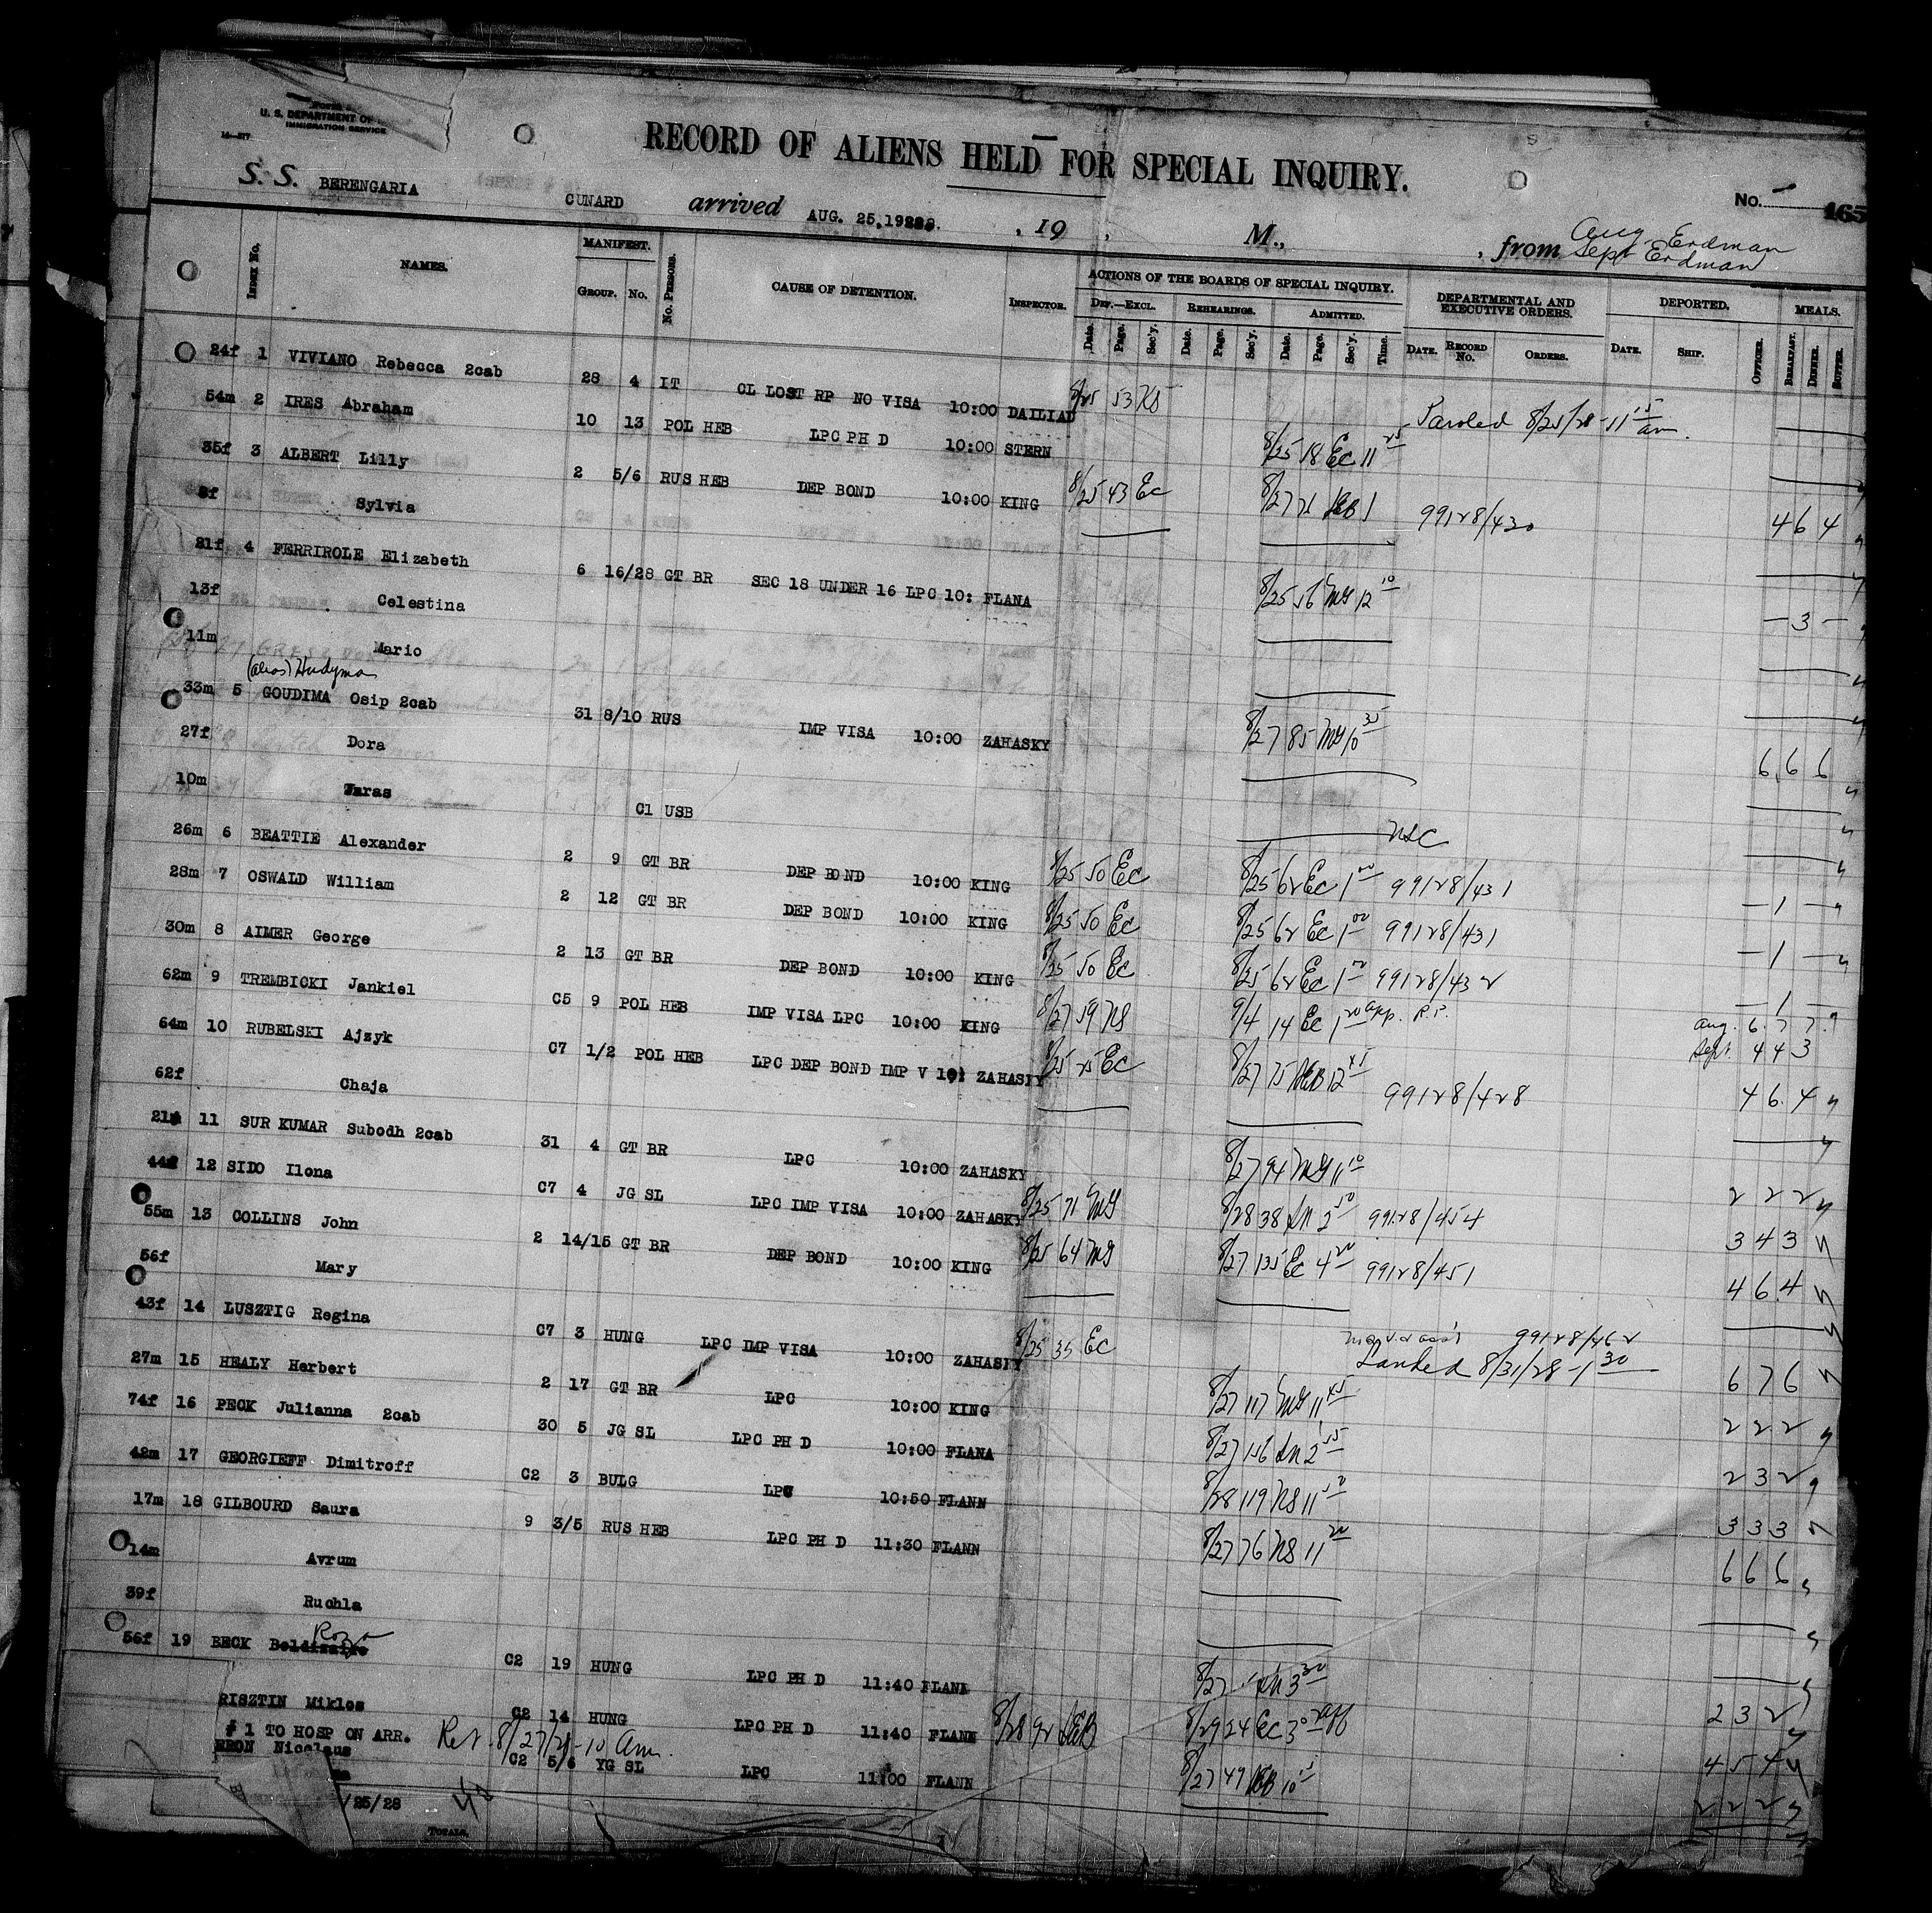 U. S. DEPARTMENT OF
IMMIGRATION SERVICE
RECORD OF ALIENS HELD FOR SPECIAL INQUIRY.
No. 165
S. S. BERENGARIA CUNARD arrived AUG. 25, 1928. , 19 , M., , from Aug. Erdman
Sept Erdman
Index No. NAMES. MANIFEST. Group. No. No. Persons. CAUSE OF DETENTION. Inspector. ACTIONS OF THE BOARDS OF SPECIAL INQUIRY. DEPARTMENTAL AND EXECUTIVE ORDERS. DEPORTED. MEALS.
Def.—Excl. Rehearings. Admitted.
Date. Page. Sec'y. Date. Page. Sec'y. Date. Page. Sec'y. Time. Date. Record No. Orders. Date. Ship. Officer. Breakfast. Dinner. Supper.
24f 1 VIVIANO Rebecca 2cab 28 4 IT CL LOST RP NO VISA 10:00 DAILIAD 8/25 53 Paroled 8/25/28 - 11 15 am.
54m 2 IRES Abraham 10 13 POL HEB LPC PH D 10:00 STERN 8/25 18 Ec 11 25
35f 3 ALBERT Lilly 2 5/6 RUS HEB DEP BOND 10:00 KING 8/25 43 Ec 8/27 71 1 99128/430 4 6 4
8f Sylvia
21f 4 FERRIROLE Elizabeth 6 16/28 GT BR SEC 18 UNDER 16 LPC 10: FLANA 8/25 56 MG 12 10 - 3 -
13f Celestina
11m Mario
(alias) Hudyma
33m 5 GOUDIMA Osip 2cab 31 8/10 RUS IMP VISA 10:00 ZAHASKY 8/27 85 MG 10 35 6 6 6
27f Dora
10m Taras C1 USB NSC
26m 6 BEATTIE Alexander 2 9 GT BR DEP BOND 10:00 KING 8/25 50 Ec 8/25 62 Ec 1 00 99128/431 - 1 -
28m 7 OSWALD William 2 12 GT BR DEP BOND 10:00 KING 8/25 50 Ec 8/25 62 Ec 1 00 99128/431 - 1 -
30m 8 AIMER George 2 13 GT BR DEP BOND 10:00 KING 8/25 50 Ec 8/25 62 Ec 1 00 99128/432 - 1 -
62m 9 TREMBICKI Jankiel C5 9 POL HEB IMP VISA LPC 10:00 KING 8/27 59 NS 9/4 14 Ec 1 20 app. R.P. Aug. 6. 7 7.
Sept. 4 4 3
64m 10 RUBELSKI Ajzyk C7 1/2 POL HEB LPC DEP BOND IMP V 10: ZAHASKY 8/25 25 Ec 8/27 75 12 45 99128/428 4 6. 4
62f Chaja
21m 11 SUR KUMAR Subodh 2cab 31 4 GT BR LPC 10:00 ZAHASKY 8/27 94 MG 11 10 2 2 2
44f 12 SIDO Ilona C7 4 JG SL LPC IMP VISA 10:00 ZAHASKY 8/25 71 MG 8/28 38 2 50 99128/454 3 4 3
55m 13 COLLINS John 2 14/15 GT BR DEP BOND 10:00 KING 8/25 64 MG 8/27 135 Ec 4 20 99128/451 4 6. 4
56f Mary
43f 14 LUSZTIG Regina C7 3 HUNG LPC IMP VISA 10:00 ZAHASKY 8/25 35 Ec 99128/462
Landed 8/31/28 - 1 30 6 7 6
27m 15 HEALY Herbert 2 17 GT BR LPC 10:00 KING 8/27 117 MG 11 45 2 2 2
74f 16 PECK Julianna 2cab 30 5 JG SL LPC PH D 10:00 FLANA 8/27 2 55 2 3 2
42m 17 GEORGIEFF Dimitroff C2 3 BULG LPC 10:50 FLANN 8/28 119 NS 11 50 3 3 3
17m 18 GILBOURD Saura 9 3/5 RUS HEB LPC PH D 11:30 FLANN 8/27 76 NS 11 20 6 6 6
14m Avrum
39f Ruchla
56f 19 BECK Roza C2 19 HUNG LPC PH D 11:40 FLANN 8/27 3 30 2 3 2
RISZTIN Miklos C2 14 HUNG LPC PH D 11:40 FLANN 8/28 92 8/29 24 Ec 3 4 5 4
# 1 TO HOSP ON ARR. Ret. 8/27/28 - 10 Am.
ERON Nicolaus C2 5/6 YG SL LPC 11:00 FLANN 8/27 47 10 2 2 2
/25/28
Totals.